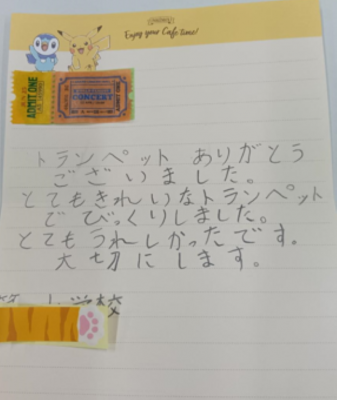 Enjoy your Cafe time!
ADMIT ONE
CONCERT
ADMIT ONE
トランペット ありがとう
ございました。
とてもきれいなトランペット
で びっくりしました。
とてもうれしかったです。
大切にします。
校